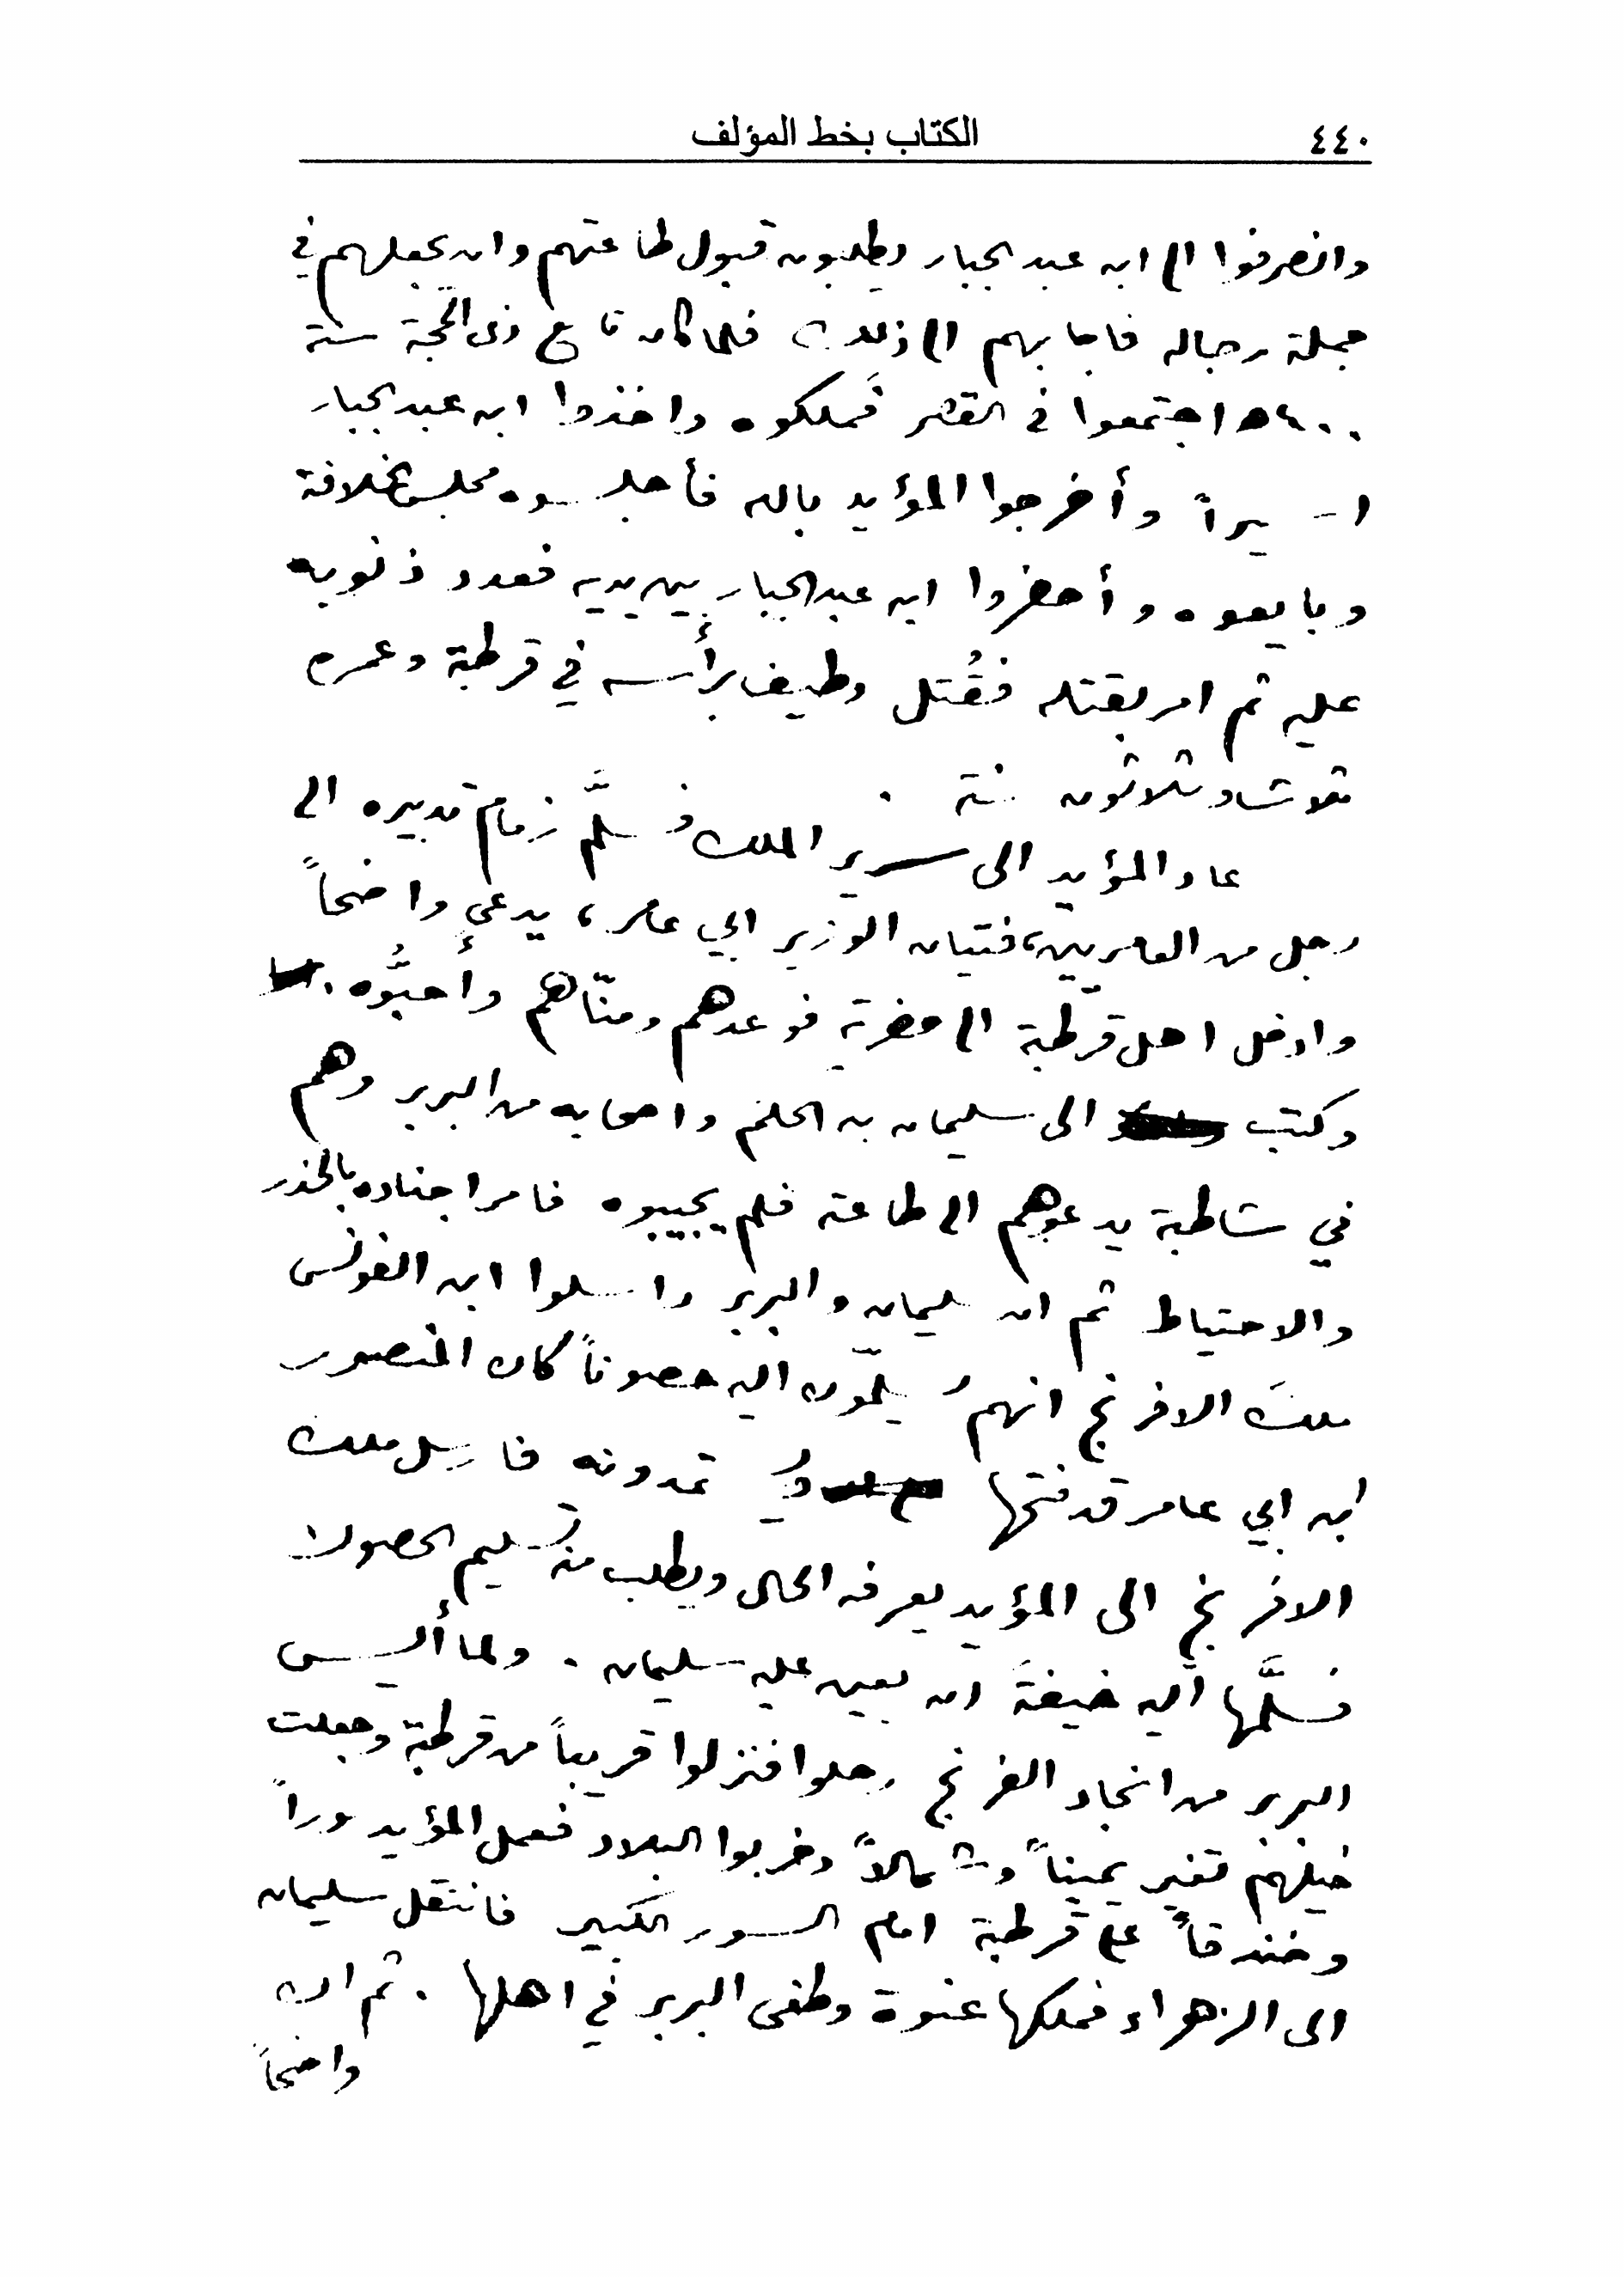 ٤٤٠ الكتاب بخط المؤلف
وانصرفوا الى ابن عبد الجبار يطلبون قبول طاعتهم وان يجعلهم في
جملة رجاله فاجابهم الى ذلك فلما كان تاسع ذى الحجة سنة
٤٠٠ ه اجتمعوا في القصر فملكوه واخذوا ابن عبد الجبار
اسيراً وأخرجوا المؤيد بالله فأجلسوه مجلس الخلافة
وبايعوه وأحضروا ابن عبد الجبار بين يديه فعدد ذنوبه
عليه ثم امر بقتله فقُتل وطيف برأسه في قرطبة وعمره
ثلاث وثلاثون سنة .
عاد المؤيد الى سرير الملك فسلَّم زمام تدبيره الى
رجل من العامريين، فتيان الوزير ابي عامر، يدعى واضحاً
وادخل اهل قرطبة الى حضرته فوعدهم ومنّاهم وأحبُّوه .
وكتب الى سليمان بن الحكم واصحابه من البربر وهم
في شاطبة يدعوهم الى طاعته فلم يجيبوه فامر اجناده بالحذر
والاحتياط ثم ان سليمان والبربر راسلوا ابن الفونس
ملكَ الافرنج انهم يسلّمون اليه حصوناً كان المنصور
ابن ابي عامر قد فتحها و تمدونه فارسل ملك
الافرنج الى المؤيد يعرفه الحال ويطلب منه تسليم الحصون
فسلَّمها اليه خيفةَ ان يعين عليه سليمان . ولما أليس
البربر من انجاد الفرنج رحلوا فنزلوا قريباً من قرطبة وجعلت
خيلهم تغير يميناً وشمالاً وخربوا البلاد فعمل المؤيد سوراً
وخندقاً على قرطبة امام السور الكبير فانتقل سليمان
الى الزهراء فملكها عنوة وطغى البربر في اهلها . ثم ان
واضحاً